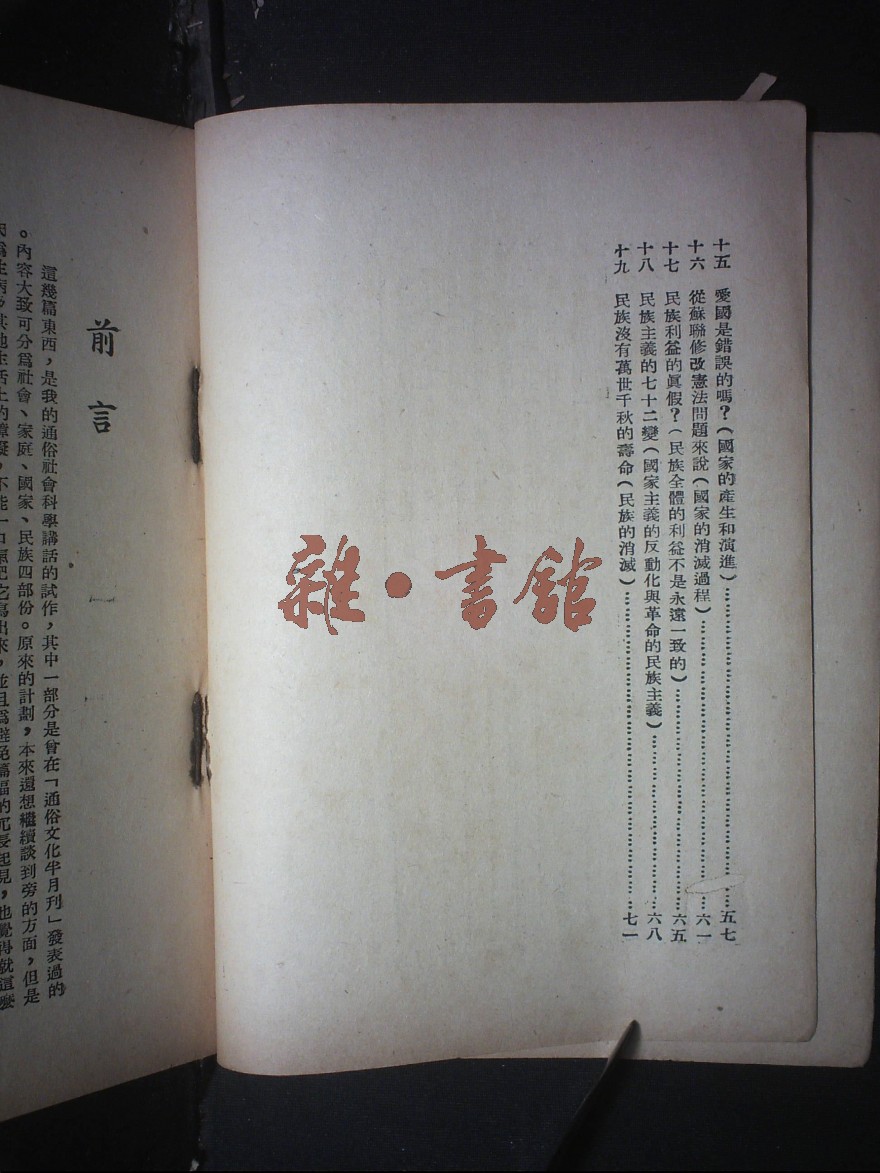 十五　愛國是錯誤的嗎？（國家的產生和演進）……五七
十六　從蘇聯修改憲法問題來說（國家的消滅過程）……六一
十七　民族利益的眞假？（民族全體的利益不是永遠一致的）……六五
十八　民族主義的七十二變（國家主義的反動化與革命的民族主義）……六八
十九　民族沒有萬世千秋的壽命（民族的消滅）……七一
雜·書館
前言
這幾篇東西，是我的通俗社會科學講話的試作，其中一部分是曾在「通俗文化半月刊」發表過的
。內容大致可分爲社會、家庭、國家、民族四部份。原來的計劃，本來還想繼續談到旁的方面，但是
因爲生病，其他生活上的障礙，不能一口氣把它寫出來，並且爲避免篇幅的冗長起見，也覺得就這麼
一